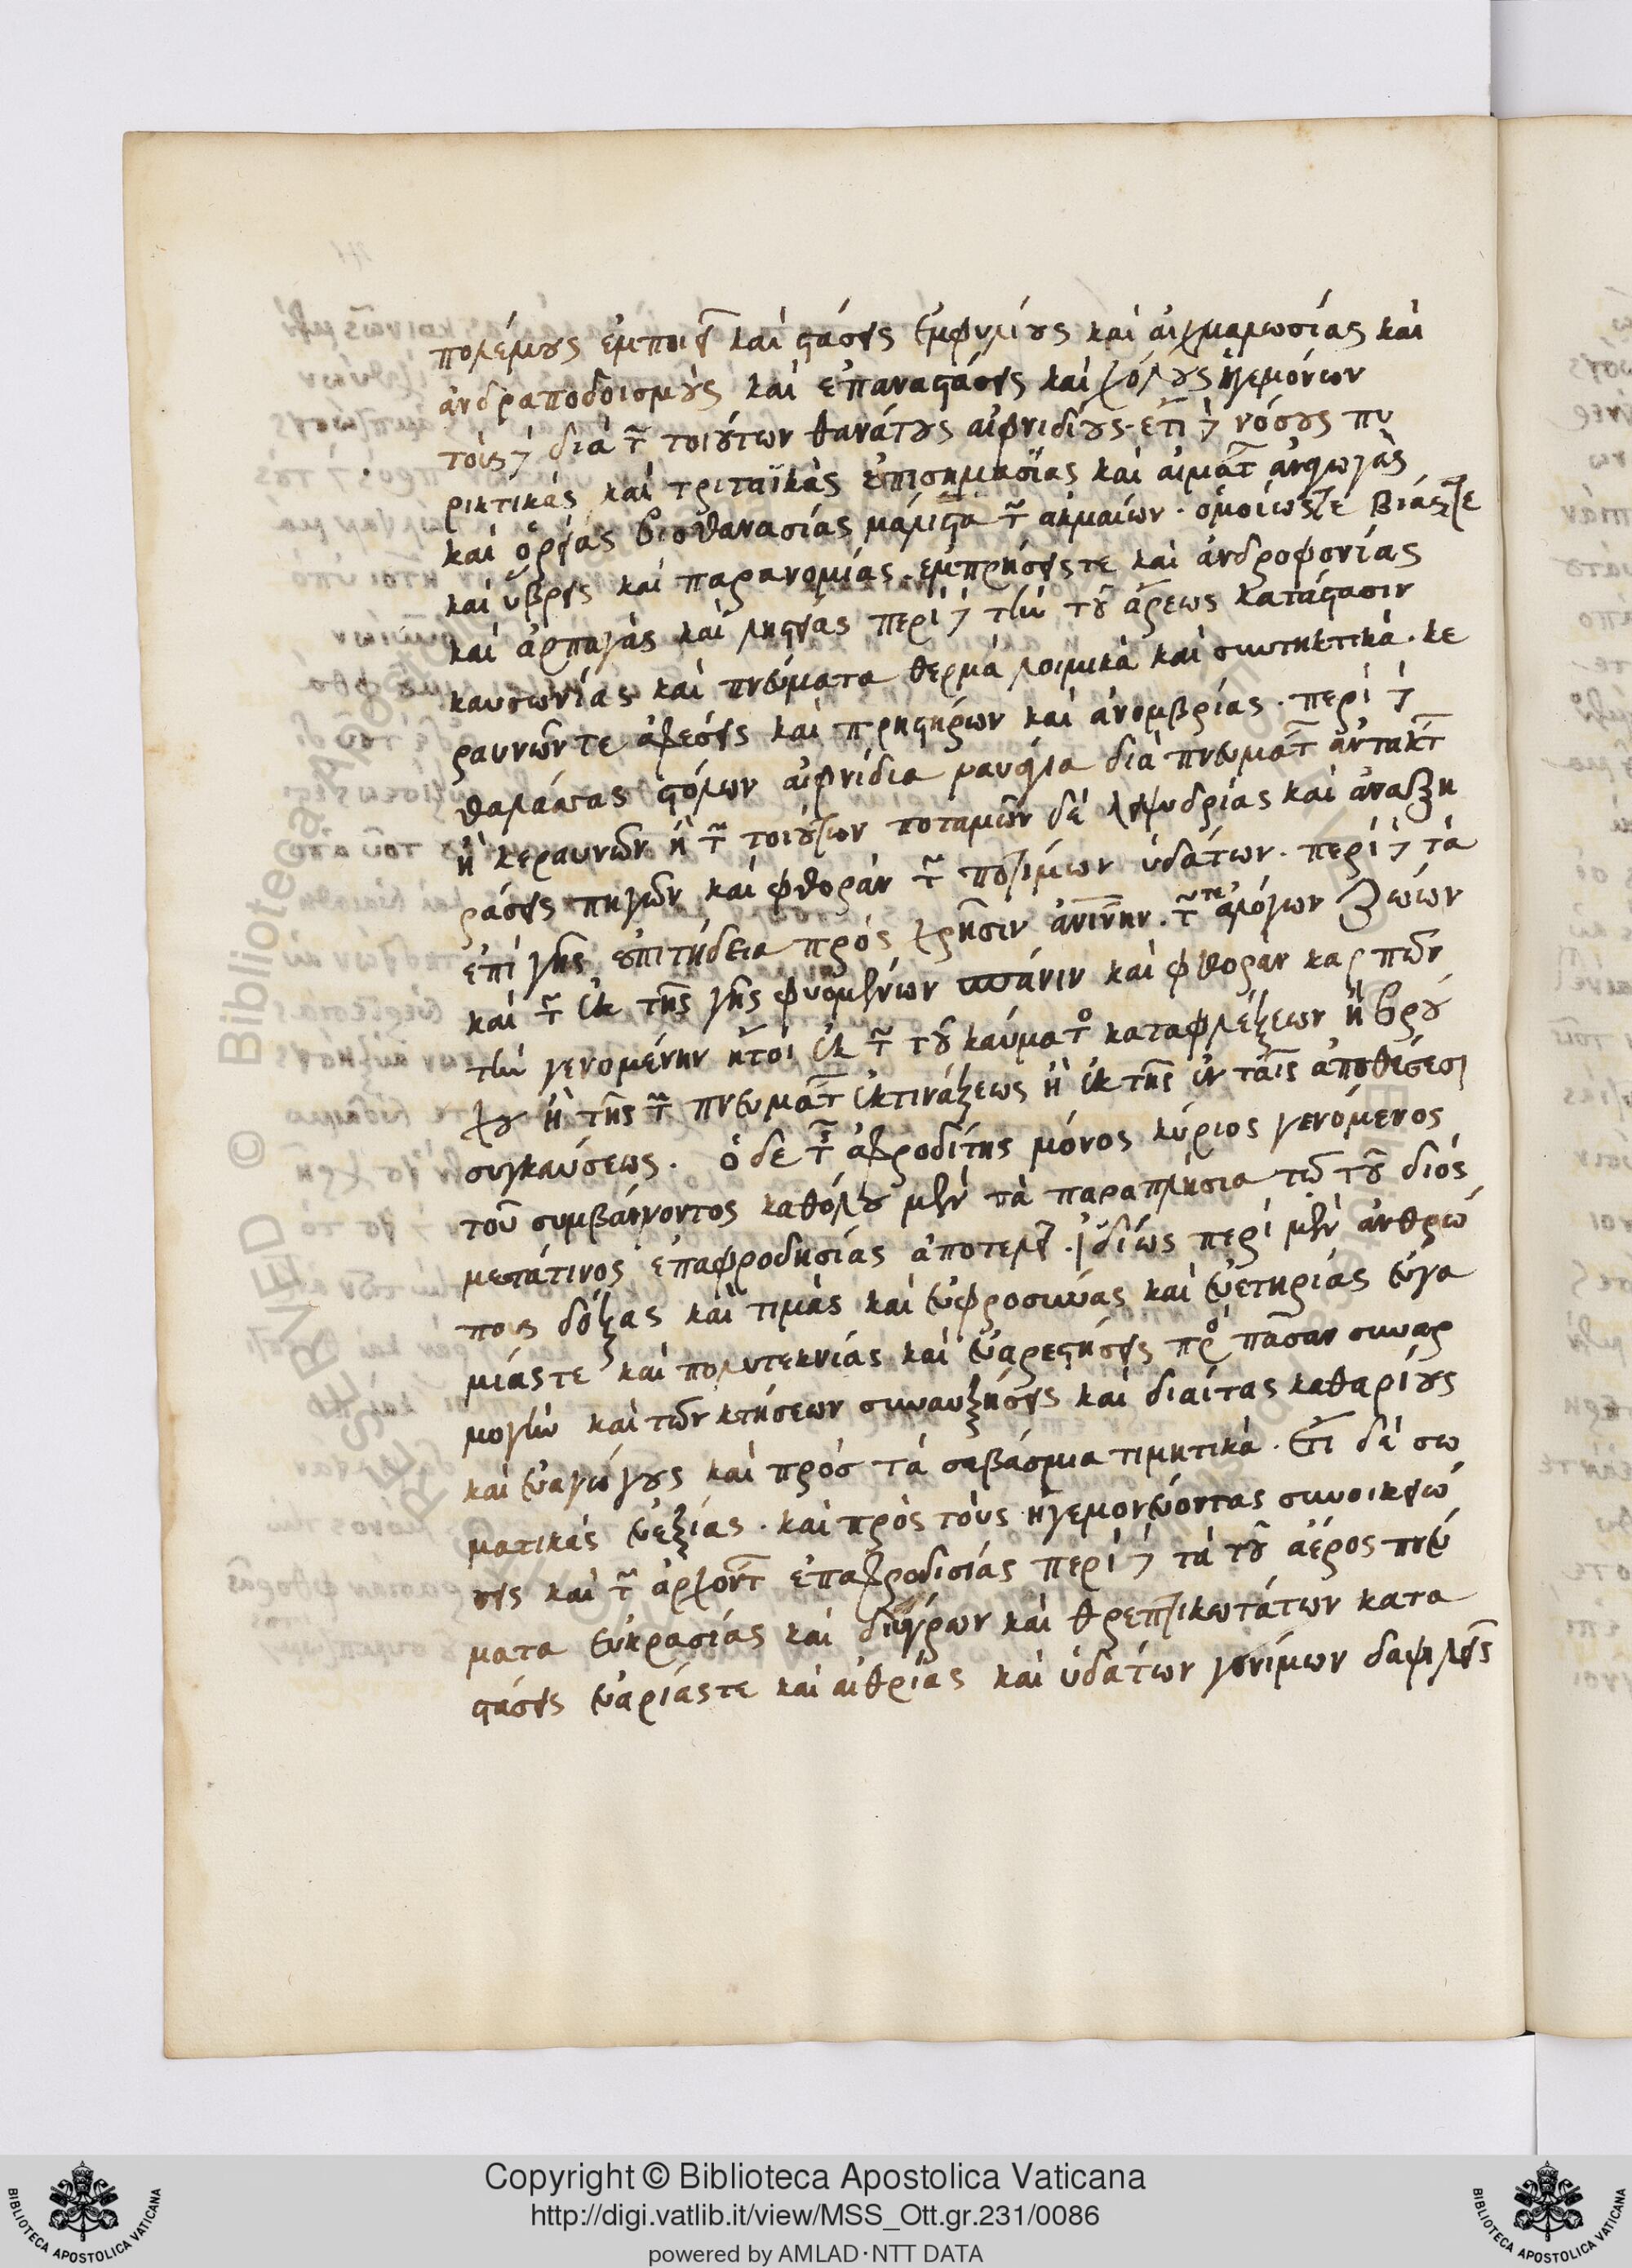 πολέμους ἐμποιεῖ καὶ στάσεις ἐμφυλίους καὶ αἰχμαλωσίας καὶ
ἀνδραποδοισμοὺς καὶ ἐπαναστάσεις καὶ χόλους ἡγεμόνων
τούς τε διὰ τῶν τοιούτων θανάτους αἰφνιδίους. ἔτι δὲ νόσους πυ
ρικτικὰς καὶ τριταϊκὰς ἐπισημασίας καὶ αἱμάτων ἀναγωγὰς
καὶ ὀξείας βιοθανασίας μάλιστα τῶν ἀκμαίων. ὁμοίως τε βίας τε
καὶ ὕβρεις καὶ παρανομίας. ἐμπρήσεις τε καὶ ἀνδροφονίας
καὶ ἁρπαγὰς καὶ ληστείας περὶ δὲ τὴν τοῦ ἀέρος κατάστασιν
καυσωνίας καὶ πνεύματα θερμὰ λοιμικὰ καὶ συντηκτικά. κε
ραυνῶν τε ἀφέσεις καὶ πρηστήρων καὶ ἀνομβρίας. περὶ δὲ
θαλάσσας στόλων αἰφνίδια ναυάγια διὰ πνευμάτων ἀτάκτων
ἢ κεραυνῶν ἢ τῶν τοιούτων ποταμῶν δὲ λειψυδρίας καὶ ἀναξη
ράσεις πηγῶν καὶ φθορὰν τῶν ποτίμων ὑδάτων. περὶ δὲ τὰ
ἐπὶ γῆς ἐπιτήδεια πρὸς χρῆσιν τῶν τε ἀλόγων ζώων
καὶ τῶν ἐκ τῆς γῆς φυομένων σπάνιν καὶ φθορὰν καρπῶν
τὴν γενομένην ἤτοι ἐκ τῶν τοῦ καύματος καταφλέξεων ἢ βρού
χου ἢ τῆς τῶν πνευμάτων ἐκτινάξεως ἢ ἐκ τῆς ἐν ταῖς ἀποθέσεσι
συγκαύσεως. ὁ δὲ τῆς ἀφροδίτης μόνος κύριος γενόμενος
τοῦ συμβαίνοντος καθόλου μὲν τὰ παραπλήσια τῷ τοῦ διός
μετάτινος ἐπαφροδησίας ἀποτελεῖ. ἰδίως περὶ μὲν ἀνθρώ
πους δόξας καὶ τιμὰς καὶ εὐφροσύνας καὶ εὐετηρίας εὐγα
μίας τε καὶ πολυτεκνίας καὶ εὐαρεστήσεις πρὸς πᾶσαν συναρ
μογὴν καὶ τῶν κτήσεων συναυξήσεις καὶ διαίτας καθαρίους
καὶ εὐαγώγους καὶ πρὸς τὰ σεβάσμια τιμητικά. ἔτι δὲ σω
ματικὰς εὐεξίας. καὶ πρὸς τοὺς ἡγεμονεύοντας συνοικειώ
σεις καὶ τῶν ἀρχόντων ἐπαφροδισίας περὶ δὲ τὰ τοῦ ἀέρος πνεύ
ματα εὐκρασίας καὶ διύγρων καὶ θρεπτικωτάτων κατα
στάσεις εὐαερίας τε καὶ αἰθρίας καὶ ὑδάτων γονίμων δαψιλεῖς
Copyright © Biblioteca Apostolica Vaticana
http://digi.vatlib.it/view/MSS_Ott.gr.231/0086
powered by AMLAD·NTT DATA
BIBLIOTECA APOSTOLICA VATICANA
BIBLIOTECA APOSTOLICA VATICANA